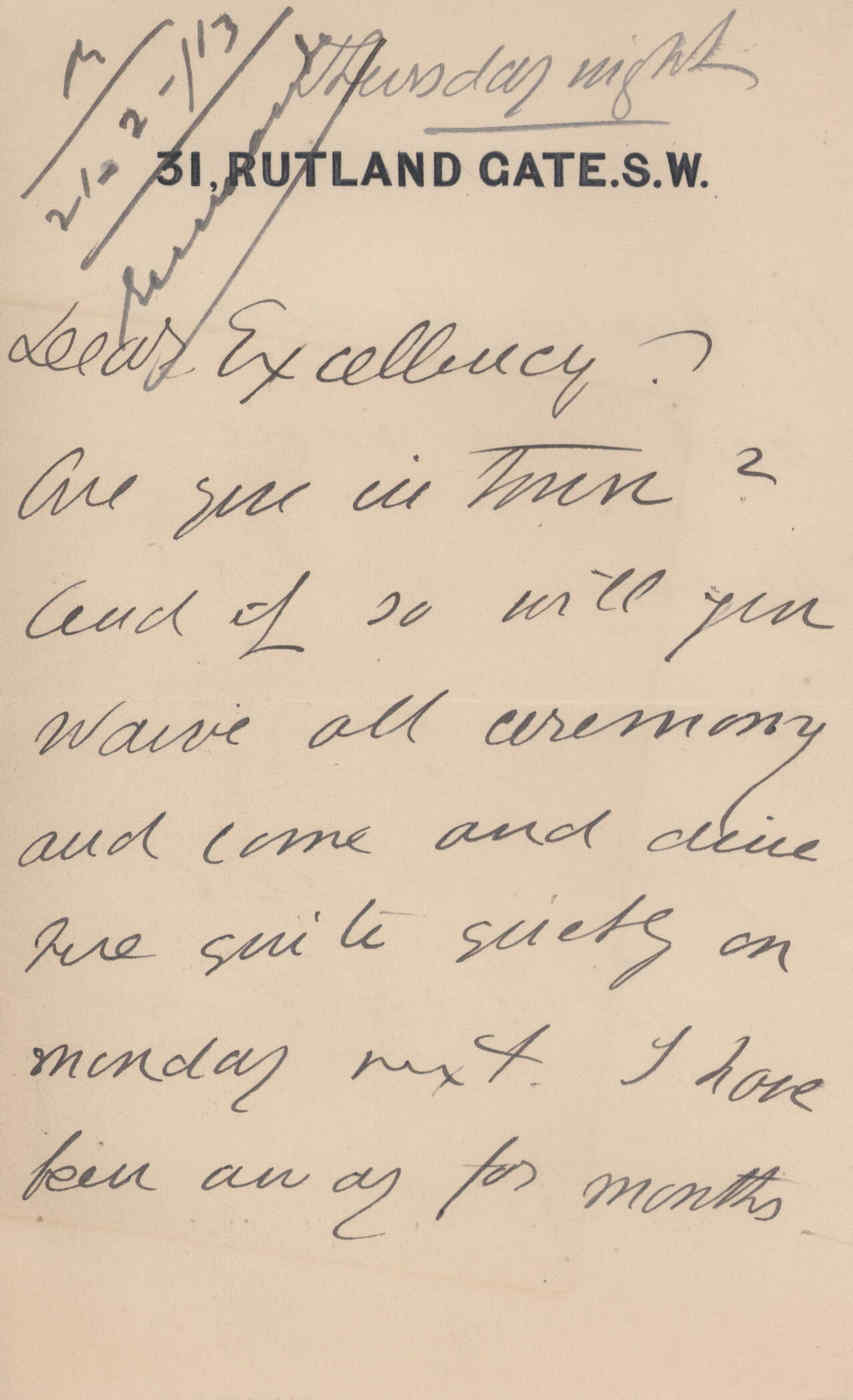 21-2-/13
Thursday night
31, RUTLAND GATE. S.W.
Dear Excellency.
Are you in Town?
And if so will you
Waive all ceremony
and come and dine
here quite quietly on
monday next. I have
been away for months